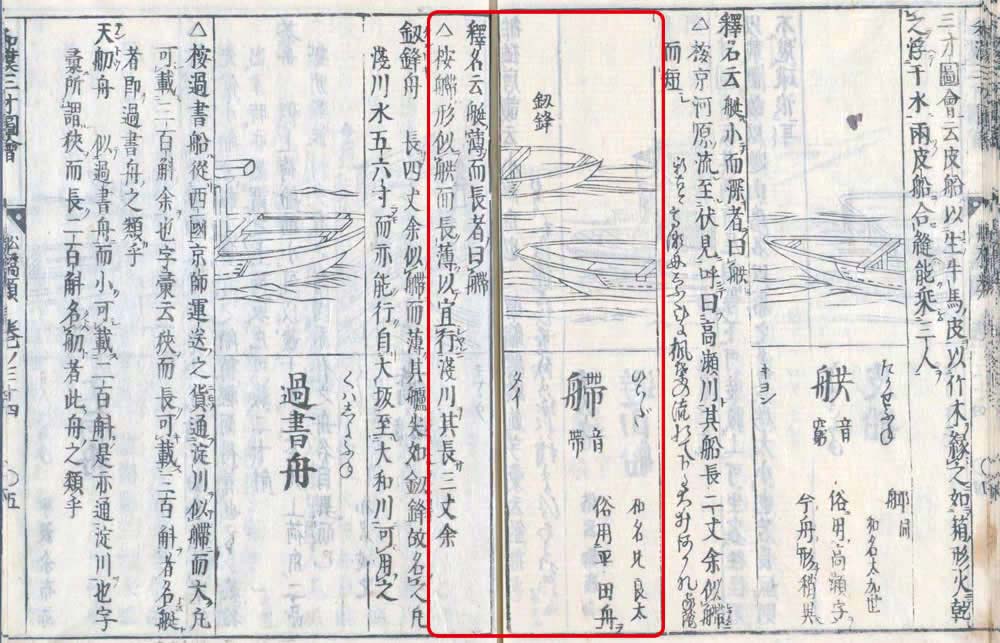 三才圖會云皮船以生牛馬皮以竹木緣之如箱形火乾
之浮于水兩皮船合縫能乘三人
たかせふね
艜同
和名太加世
俗用高瀬字
今舟形稍異
音
キヨン
釋名云艇小而深者曰𦨵
△按京河原流至伏見呼曰高瀬川其船長二丈余似艜
而短
ひらだ
艜
音帶
タイ
和名比良太
俗用平田舟
釼鋒
釋名云艇薄而長者曰艜
△按艜形似𦨵而長薄以宜行淺川其長三丈余
釼鋒舟 長四丈余似艜而薄其艫尖如釼鋒故名之凡
淺川水五六寸而亦能行自大坂至大和川可用之
くはしよふね
過書舟
△按過書船從西國京師運送之貨通淀川似艜而大凡
可載三百斛余也字彙云狹而長可載三百斛者名艇
者即過書舟之類乎
天舠舟 似過書舟而小可載二百斛是亦通淀川也字
彙所謂狹而長二百斛名舠者此舟之類乎
和漢三才圖會
船橋類 卷ノ三十四
○五